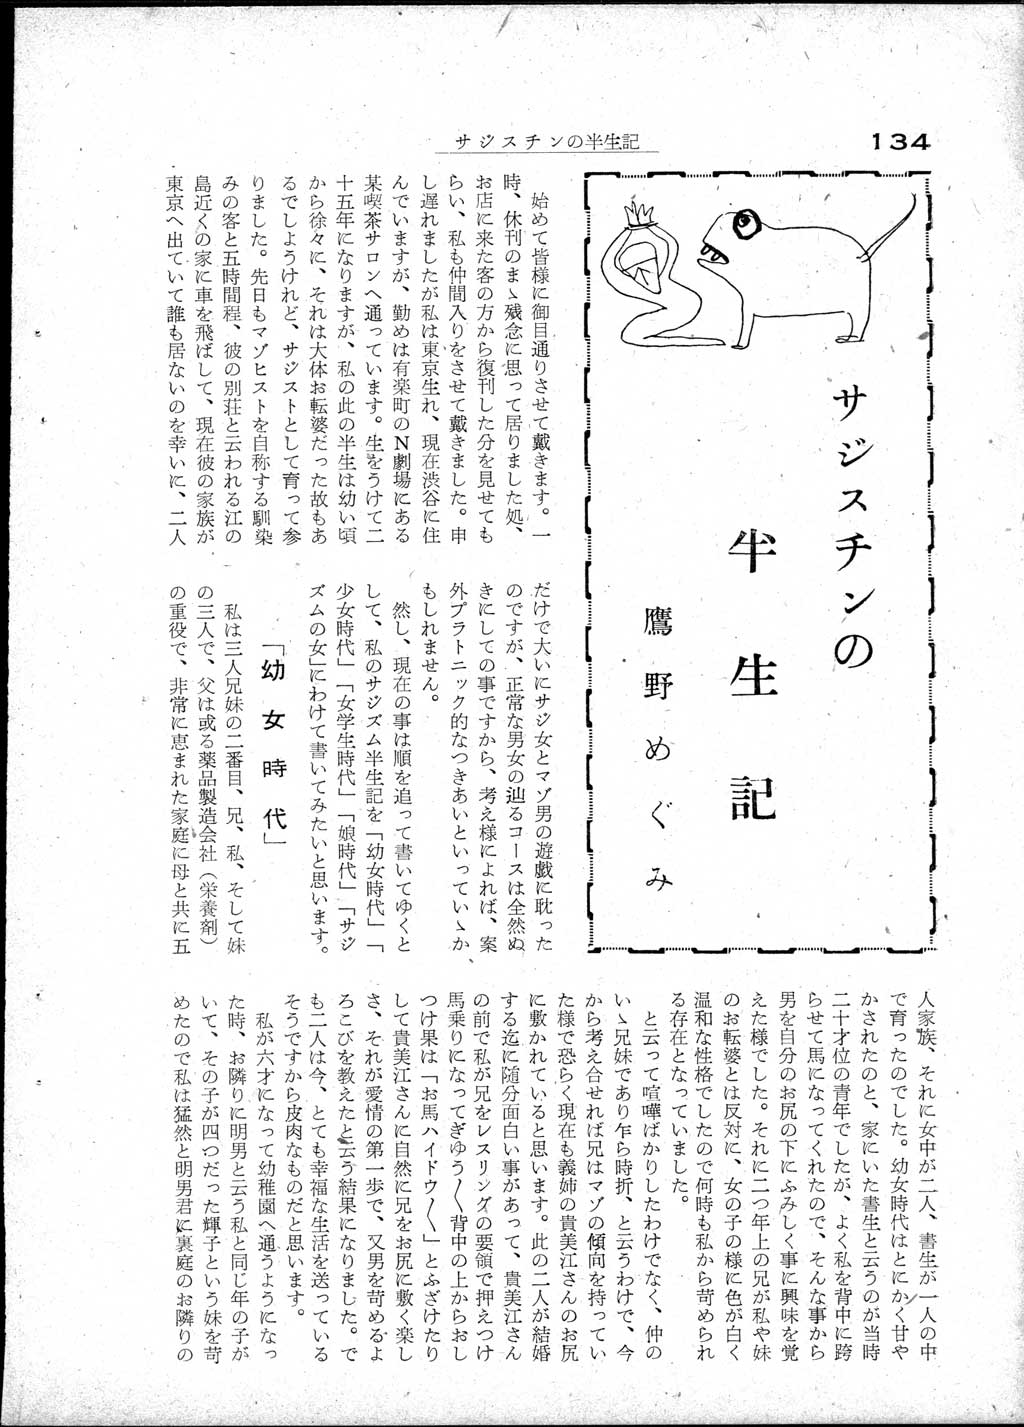 134
サジスチンの半生記
サジスチンの
半生記
鷹野めぐみ
始めて皆様に御目通りさせて戴きます。一
時、休刊のまゝ残念に思って居りました処、
お店に来た客の方から復刊した分を見せても
らい、私も仲間入りをさせて戴きました。申
し遅れましたが私は東京生れ、現在渋谷に住
んでいますが、勤めは有楽町のN劇場にある
某喫茶サロンへ通っています。生をうけて二
十五年になりますが、私の此の半生は幼い頃
から徐々に、それは大体お転婆だった故もあ
るでしようけれど、サジストとして育って参
りました。先日もマゾヒストを自称する馴染
みの客と五時間程、彼の別荘と云われる江の
島近くの家に車を飛ばして、現在彼の家族が
東京へ出ていて誰も居ないのを幸いに、二人
だけで大いにサジ女とマゾ男の遊戯に耽った
のですが、正常な男女の辿るコースは全然ぬ
きにしての事ですから、考え様によれば、案
外プラトニック的なつきあいといっていゝか
もしれません。
然し、現在の事は順を追って書いてゆくと
して、私のサジズム半生記を「幼女時代」「
少女時代」「女学生時代」「娘時代」「サジ
ズムの女」にわけて書いてみたいと思います。
「幼女時代」
私は三人兄妹の二番目、兄、私、そして妹
の三人で、父は或る薬品製造会社（栄養剤）
の重役で、非常に恵まれた家庭に母と共に五
人家族、それに女中が二人、書生が一人の中
で育ったのでした。幼女時代はとにかく甘や
かされたのと、家にいた書生と云うのが当時
二十才位の青年でしたが、よく私を背中に跨
らせて馬になってくれたので、そんな事から
男を自分のお尻の下にふみしく事に興味を覚
えた様でした。それに二つ年上の兄が私や妹
のお転婆とは反対に、女の子の様に色が白く
温和な性格でしたので何時も私から苛められ
る存在となっていました。
と云って喧嘩ばかりしたわけでなく、仲の
いゝ兄妹であり乍ら時折、と云うわけで、今
から考え合せれば兄はマゾの傾向を持ってい
た様で恐らく現在も義姉の貴美江さんのお尻
に敷かれていると思います。此の二人が結婚
する迄に随分面白い事があって、貴美江さん
の前で私が兄をレスリングの要領で押えつけ
馬乗りになってぎゆう〱背中の上からおし
つけ果は「お馬ハイドウ〱」とふざけたり
して貴美江さんに自然に兄をお尻に敷く楽し
さ、それが愛情の第一歩で、又男を苛めるよ
ろこびを教えたと云う結果になりました。で
も二人は今、とても幸福な生活を送っている
そうですから皮肉なものだと思います。
私が六才になって幼稚園へ通うようになっ
た時、お隣りに明男と云う私と同じ年の子が
いて、その子が四つだった輝子という妹を苛
めたので私は猛然と明男君に裏庭のお隣りの